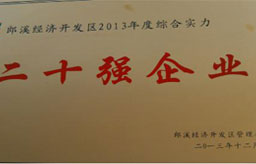 郎溪经济开发区2013年度综合实力
二十强企业
郎溪经济开发区管理
二〇一三年十二月